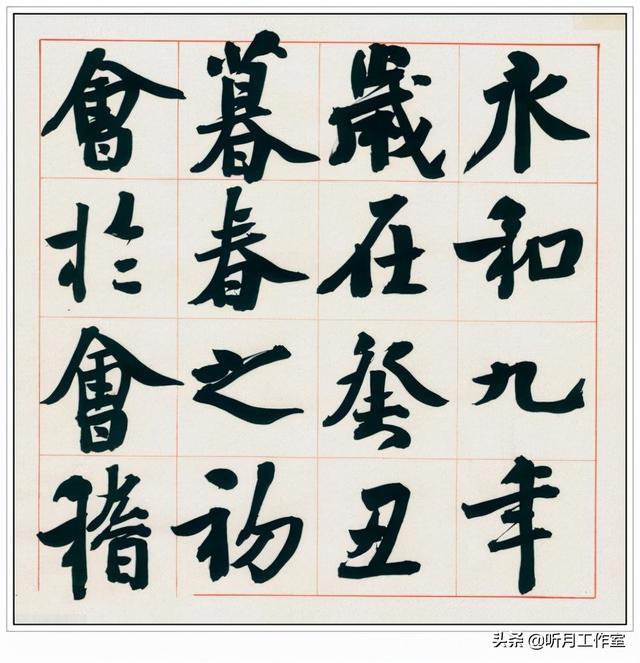 永和九年
歲在癸丑
暮春之初
會於會稽
头条 @听月工作室